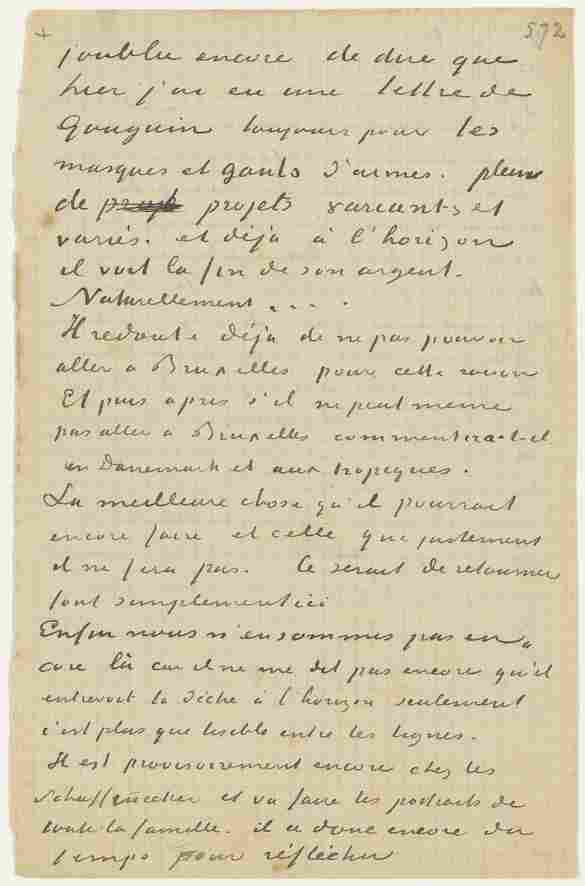 + 572
j'oublie encore de dire que
hier j'ai eu une lettre de
Gauguin toujours pour les
masques et gants d'armes. plein
de projets variants et
variés. et déjà à l'horizon
il voit la fin de son argent.
Naturellement . . . .
Il redoute déja de ne pas pouvoir
aller a Bruxelles pour cette raison
Et puis apres s'il ne peut meme
pas aller a Bruxelles comment ira-t-il
en Danemark et aux tropiques.
La meilleure chose qu'il pourrait
encore faire et celle que justement
il ne fera pas. Ce serait de retourner
tout simplement ici
Enfin nous n'en sommes pas en
core là car il ne me dit pas encore qu'il
entrevoit la dèche à l'horizon seulement
c'est plus que lisible entre les lignes.
Il est provisoirement encore chez les
Schuffenecker et va faire les portraits de
toute la famille. il a donc encore du
temps pour réfléchir